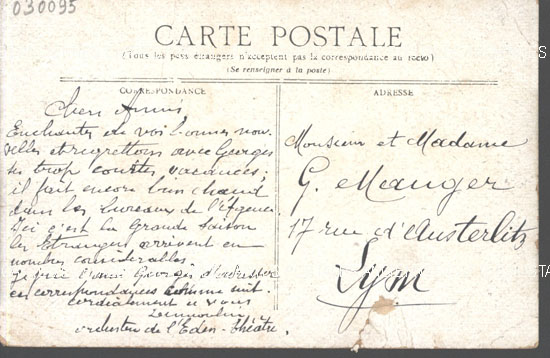 030095
CARTE POSTALE
(Tous les pays étrangers n'acceptent pas la correspondance au recto)
(Se renseigner à la poste)
CORRESPONDANCE
Chers Amis
Enchantés de vos bonnes nou-
velles et regrettons avec Georges
ses trop courtes vacances;
il fait encore bien chaud
dans les bureaux de l'Agence
Ici c'est la Grande Saison
les Etrangers arrivent en
nombres considérables.
je prie l'ami Georges d'adresser
ses correspondances comme suit
cordialement à vous
orchestre de l'Eden-Théâtre.
ADRESSE
Monsieur et Madame
G. Mauger
17 rue d'Austerlitz
Lyon